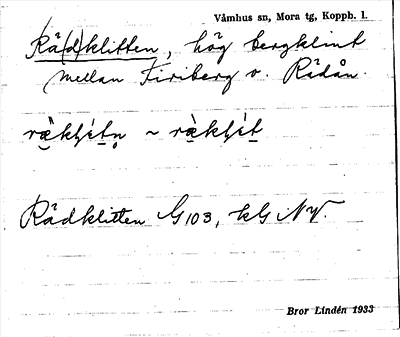 Våmhus sn, Mora tg, Koppb. l.
Rå(d)klitten, hög bergklint
mellan Firiberg o. Rådån.
Rådklitten G103, kG NV.
Bror Lindén 1933